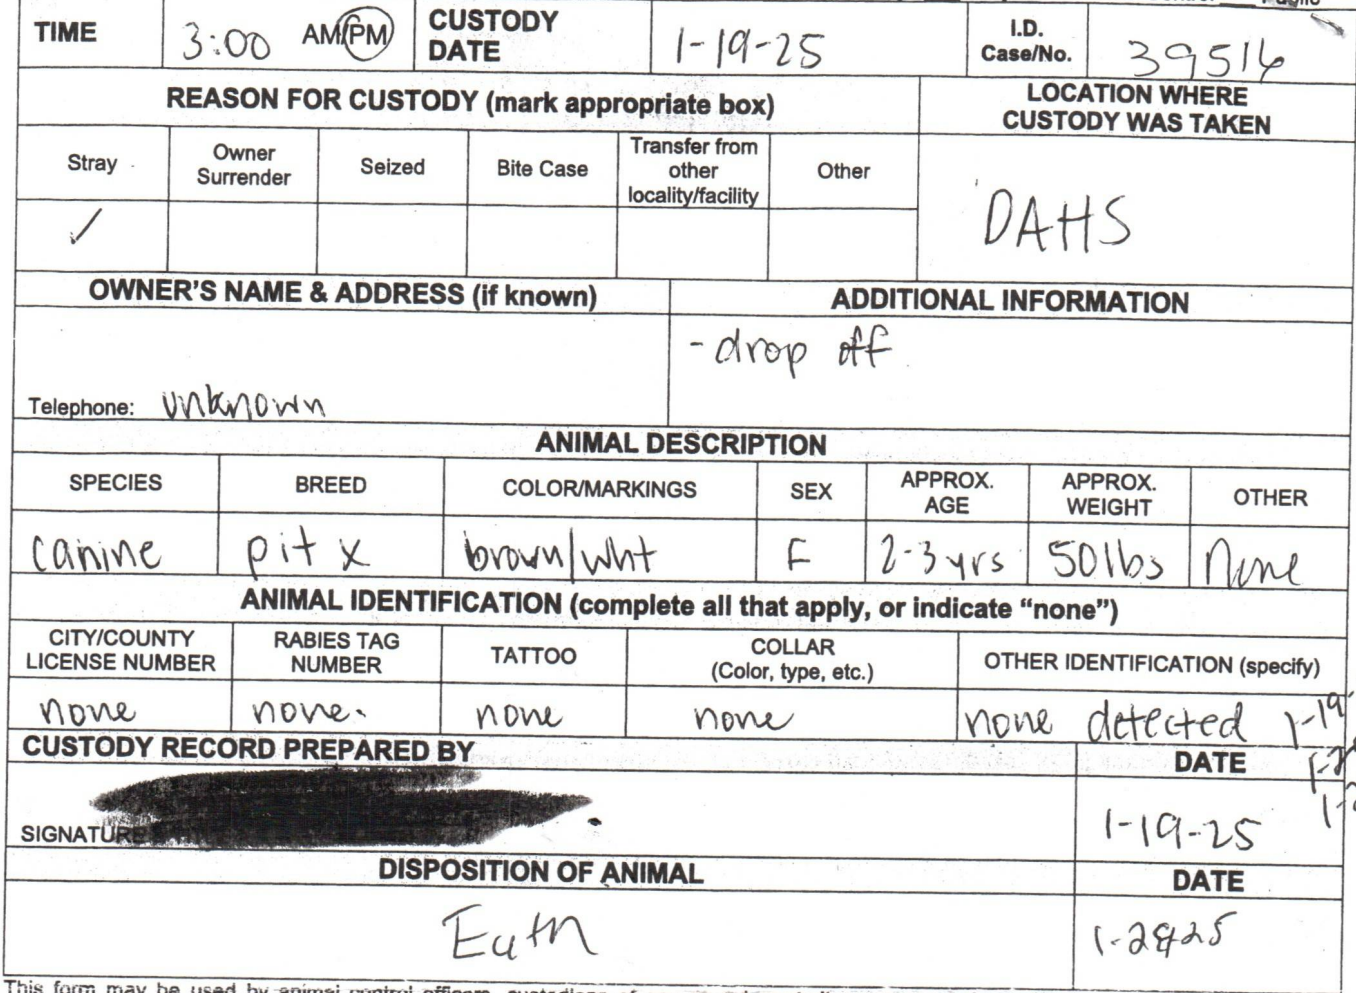 TIME 3:00 AM/PM CUSTODY DATE 1-19-25 I.D. Case/No. 39516
REASON FOR CUSTODY (mark appropriate box) LOCATION WHERE CUSTODY WAS TAKEN
Stray Owner Surrender Seized Bite Case Transfer from other locality/facility Other
✓ DAHS
OWNER'S NAME & ADDRESS (if known) ADDITIONAL INFORMATION
- drop off
Telephone: unknown
ANIMAL DESCRIPTION
SPECIES BREED COLOR/MARKINGS SEX APPROX. AGE APPROX. WEIGHT OTHER
canine pit x brown/wht F 2-3 yrs 50 lbs None
ANIMAL IDENTIFICATION (complete all that apply, or indicate "none")
CITY/COUNTY LICENSE NUMBER RABIES TAG NUMBER TATTOO COLLAR (Color, type, etc.) OTHER IDENTIFICATION (specify)
none none. none none none detected 1-19
CUSTODY RECORD PREPARED BY DATE
SIGNATURE 1-19-25
DISPOSITION OF ANIMAL DATE
Euth
This form may be used by animal control officers, custodians of